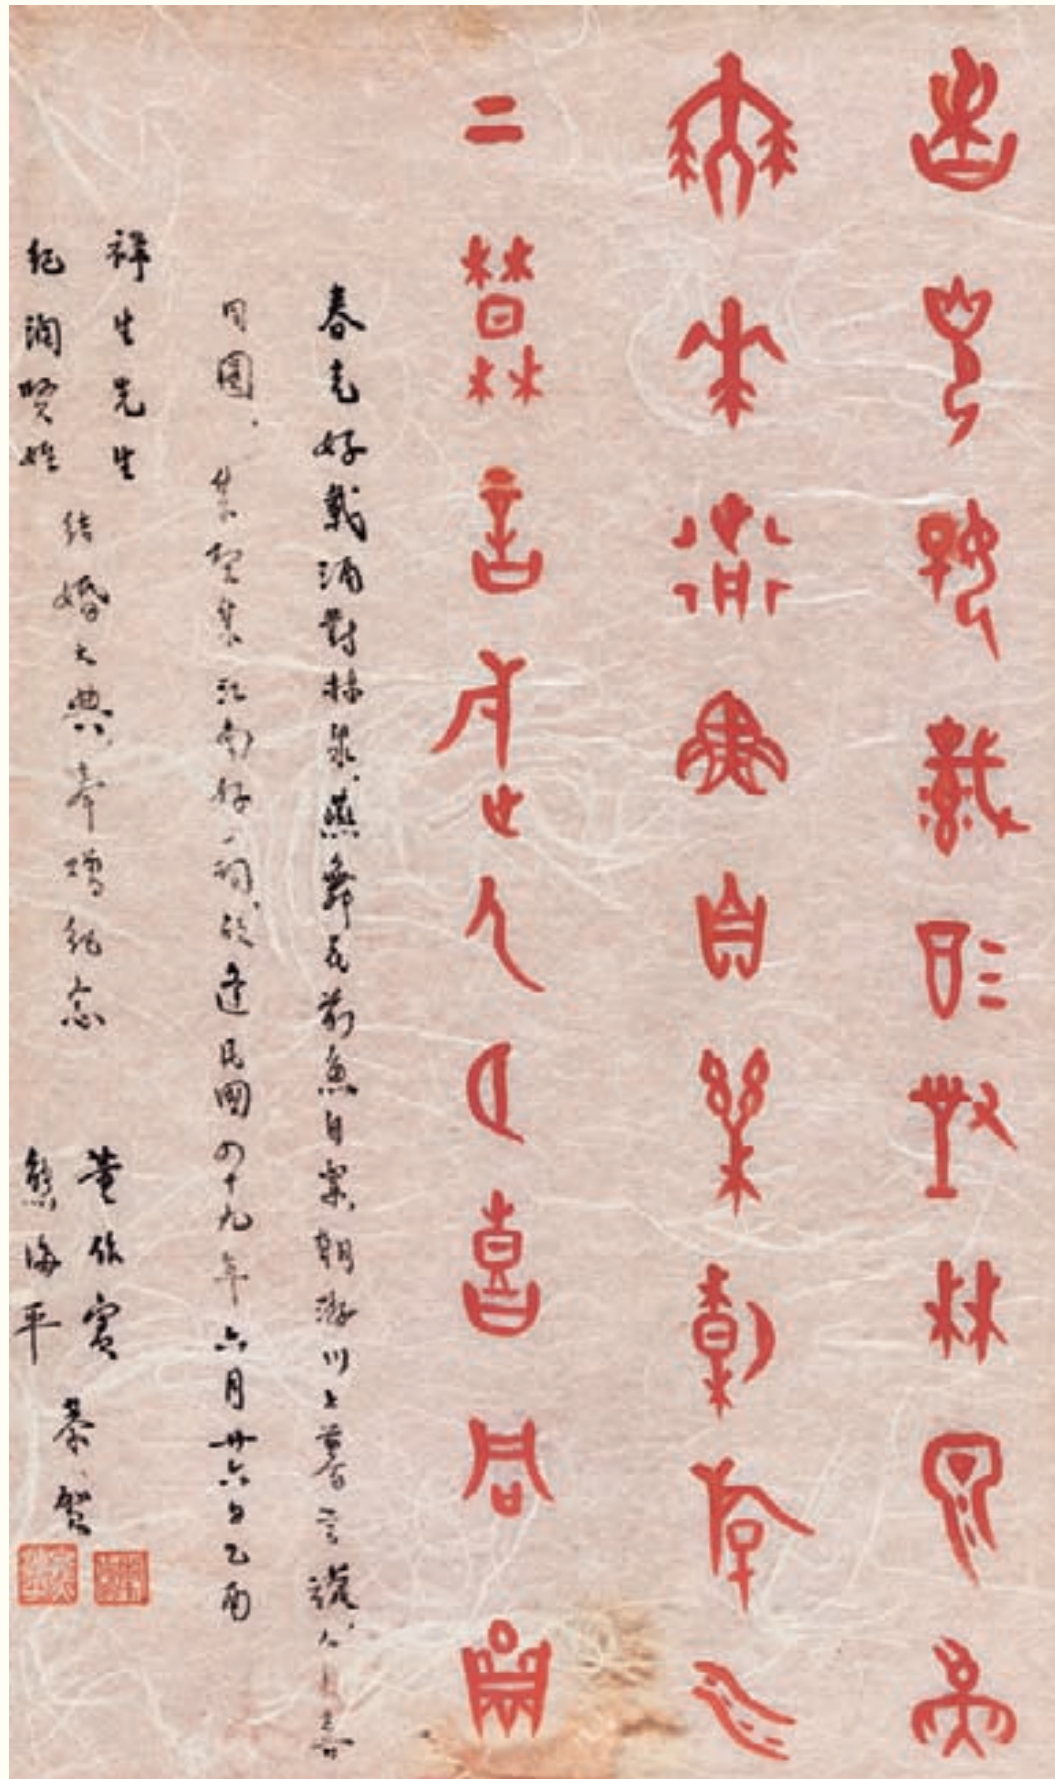 春光好載酒對林泉燕
舞花前魚自樂朝游川
上暮言旋人月喜同圓
春光好載酒對林泉、燕舞花前魚自樂、朝游川上暮言旋、人月喜
同圓、集契集江南好一詞、欣逢民國四十九年六月廿六日乙酉
祥生先生
紀潤賢姪
結婚大典、奉贈紀念
董作賓
熊海平
恭賀